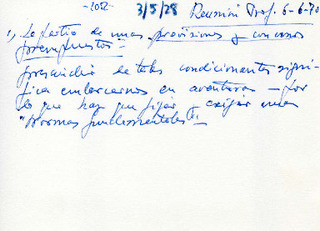 -2012- 3/5/28 Reunión Prof. 6-6-70
1) Se partió de unas provisiones y con unos
presupuestos.-
prescindir de tales condicionantes signi-
fica embarcarnos en aventuras - por
lo que hay que fijar y exigir unas
"Normas fundamentales".-